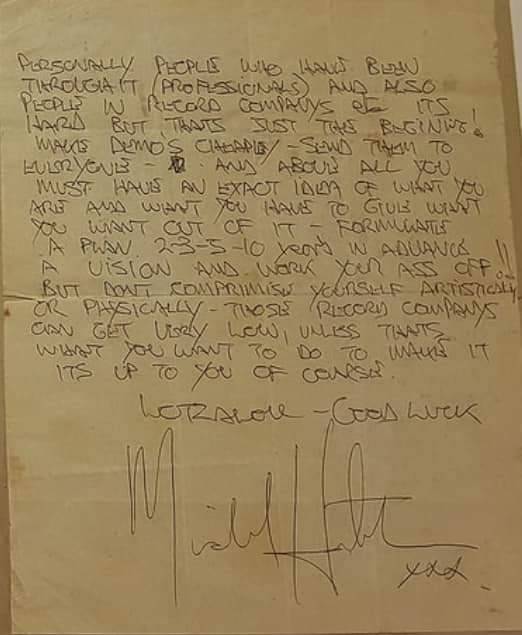 PERSONALLY PEOPLE WHO HAVE BEEN
THROUGH IT (PROFESSIONALS) AND ALSO
PEOPLE IN RECORD COMPANYS etc ITS
HARD BUT THATS JUST THE BEGINING!
MAKE DEMO'S CHEAPLY - SEND THEM TO
EVERYONE - AND ABOVE ALL YOU
MUST HAVE AN EXACT IDEA OF WHAT YOU
ARE AND WHAT YOU HAVE TO GIVE WHAT
YOU WANT OUT OF IT - FORMULATE
A PLAN 2-3-5-10 YEARS IN ADVANCE!!
A VISION AND WORK YOUR ASS OFF!
BUT DONT COMPRIMISE YOURSELF ARTISTICALLY
OR PHYSICALLY - THOSE RECORD COMPANYS
CAN GET VERY LOW, UNLESS THATS
WHAT YOU WANT TO DO TO MAKE IT
ITS UP TO YOU OF COURSE.
LOTZALOVE - GOOD LUCK
xxx.